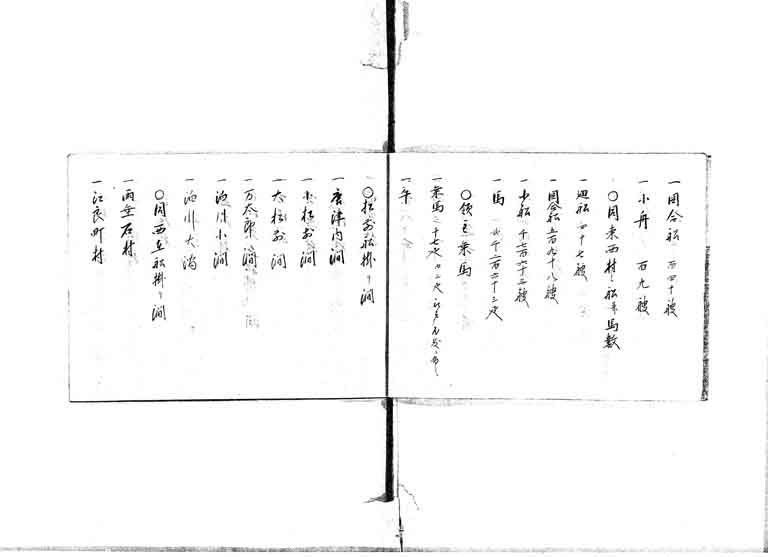 一図合船 百四十艘
一小舟 百九艘
〇同東西村々船并馬数
一廻船 四十七艘
一図合船 五百九十八艘
一小船 千七百六十三艘
一馬 千二百六十三疋
〇領主乗馬
一乗馬 三十七疋 内二疋
一牛
〇松前船掛り澗
一唐津内澗
一小松前澗
一大松前澗
一万太郎澗
一泊川小澗
一泊川大澗
〇同西在船掛り澗
一両全石村
一江良町村